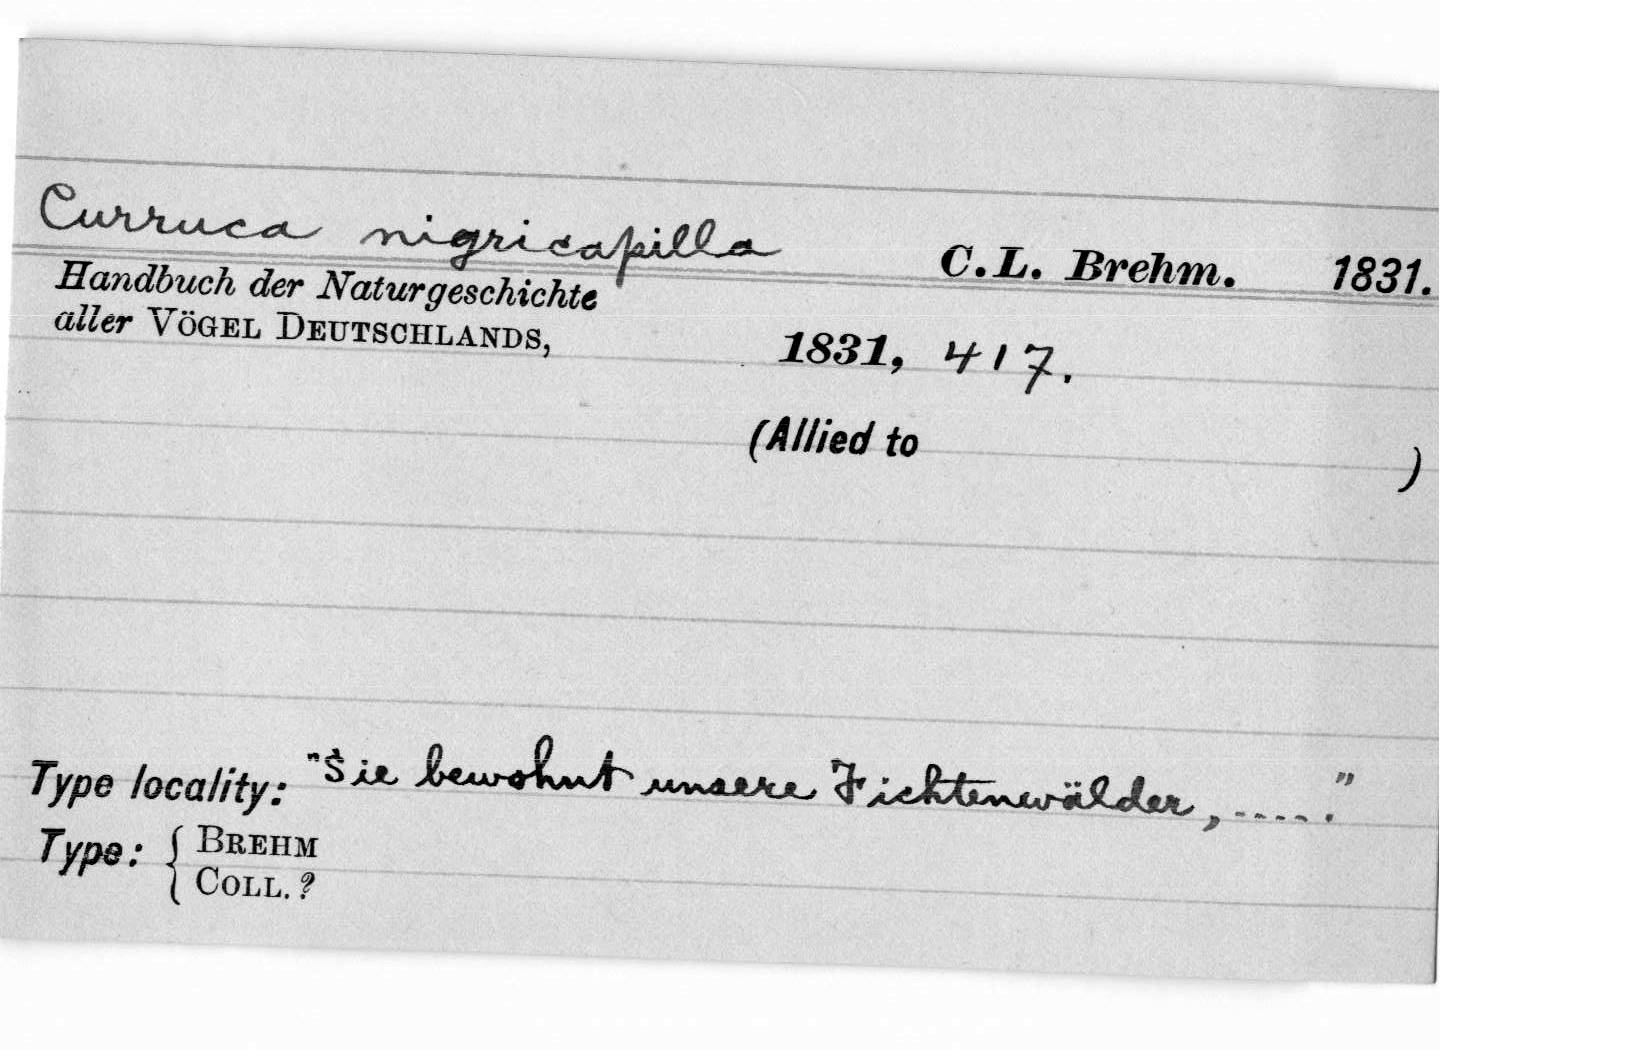 Curruca nigricapilla C.L. Brehm. 1831.
Handbuch der Naturgeschichte
aller VÖGEL DEUTSCHLANDS, 1831, 417.
(Allied to )
Type locality: "Sie bewohnt unsere Fichtenwälder, ....."
Type: { BREHM
COLL. ?